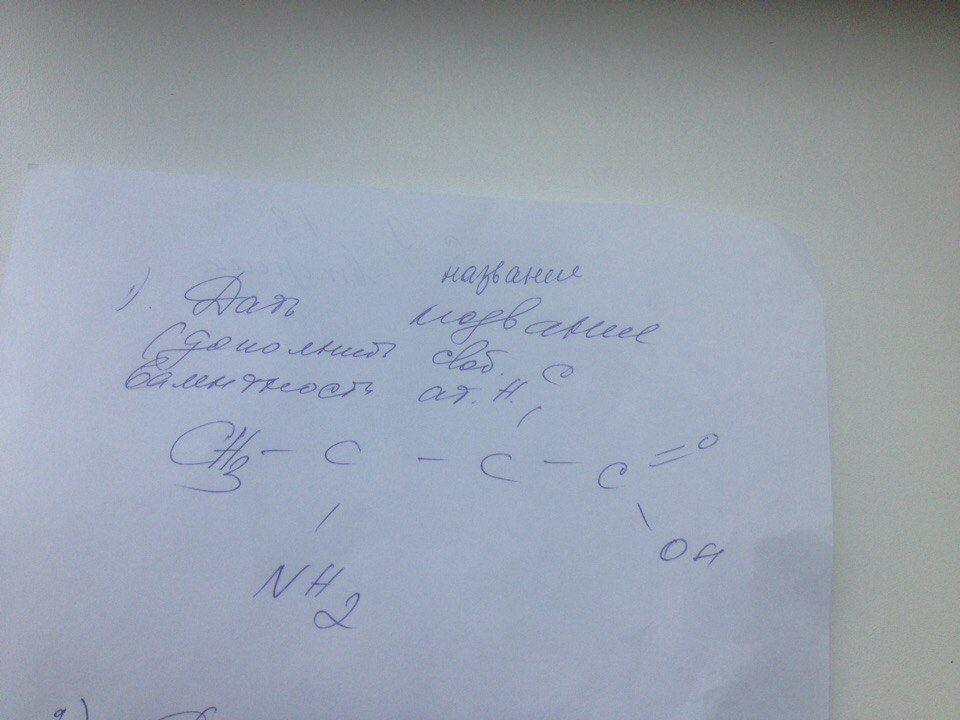 название
1). Дать название
(дополнить своб.
валентность ат. Н.
C
CH3 - C - C - C = O
NH2
OH
2)